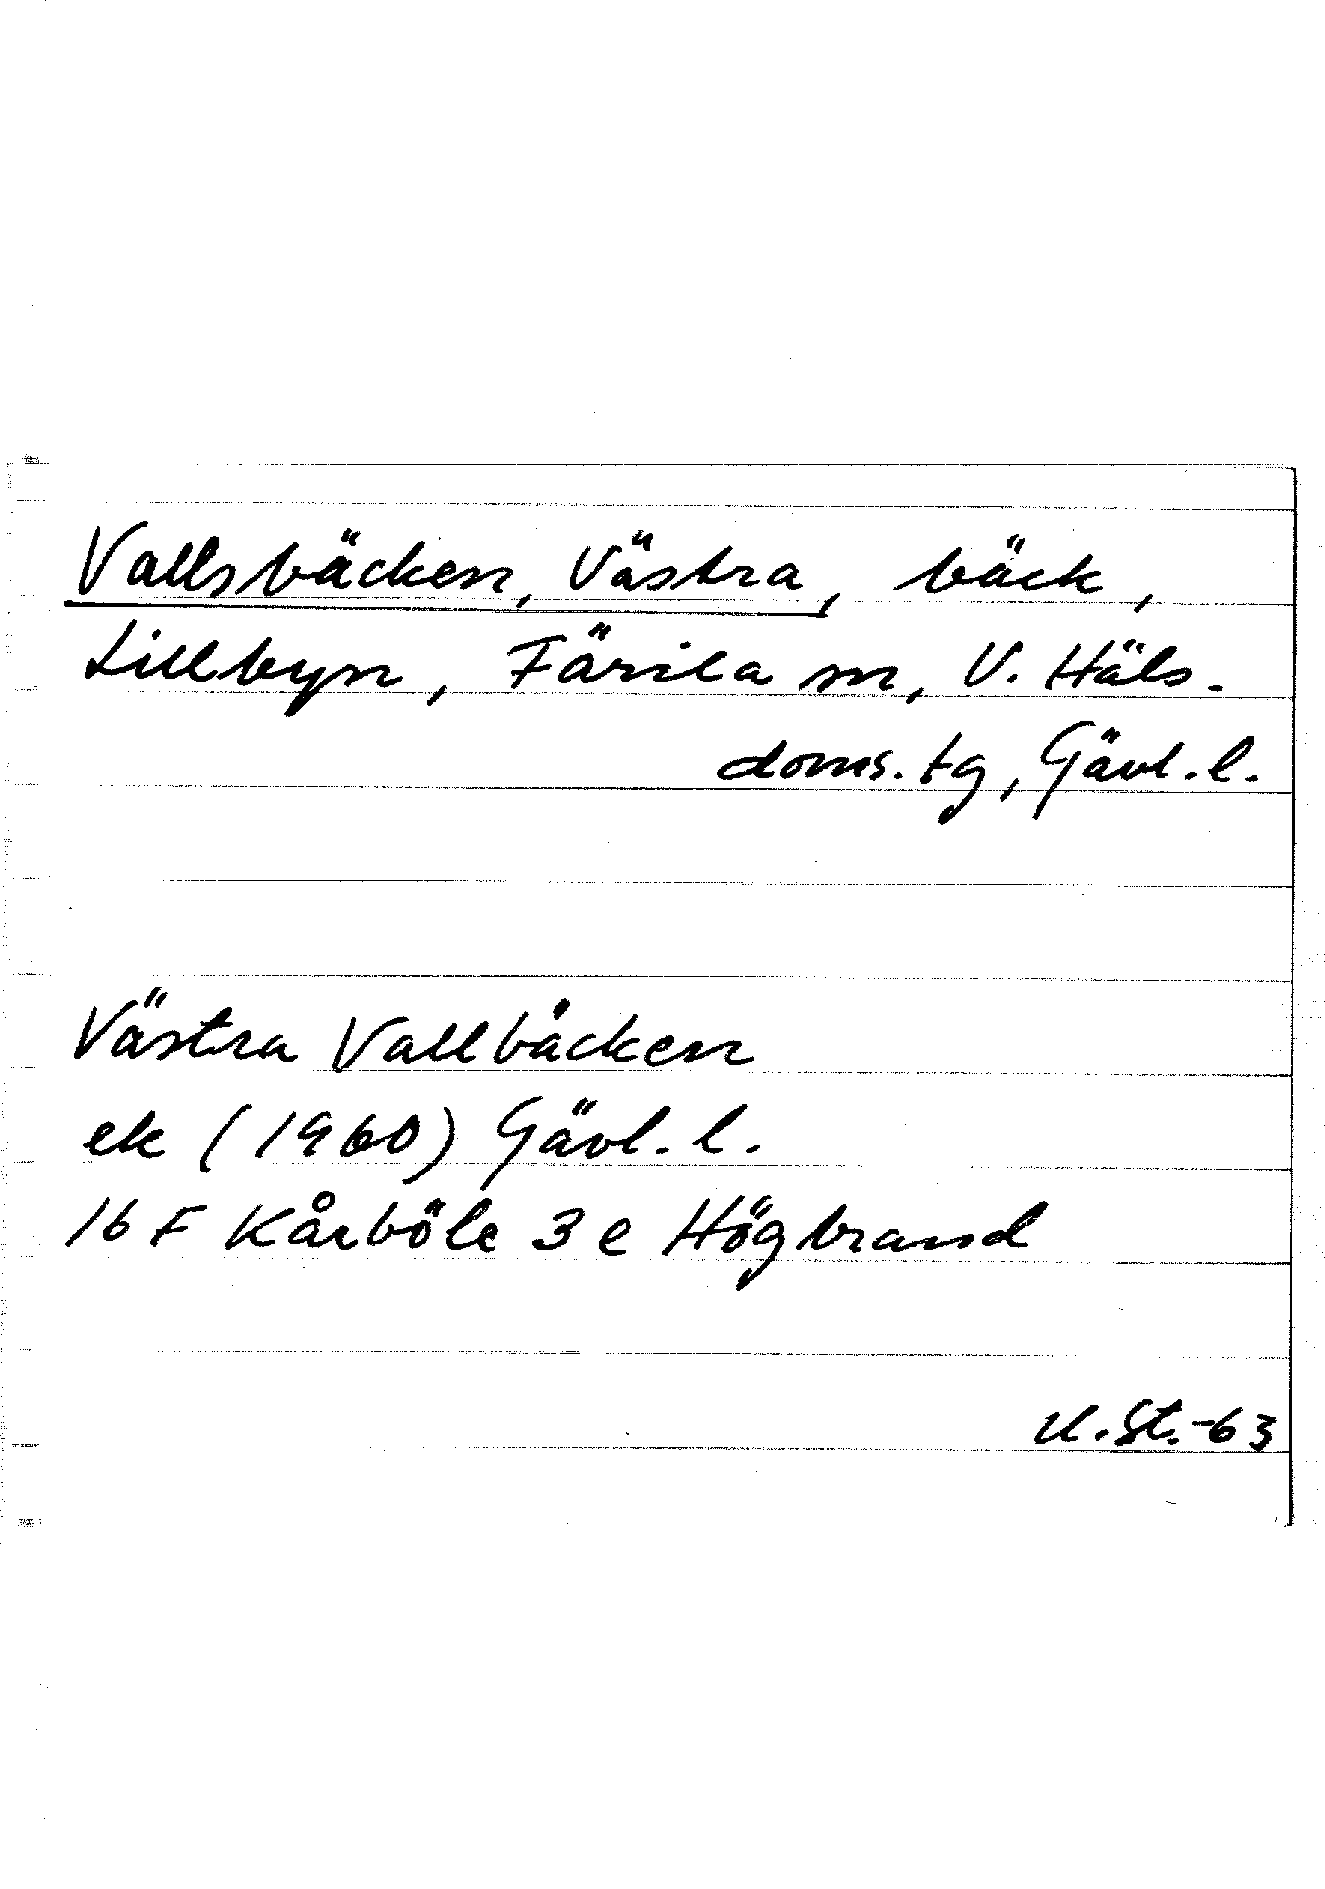 Vallsbäcken, Västra, bäck,
Lillbyn, Färila sn, V. Häls.
doms. tg, Gävl. l.
Västra Vallbäcken
ek (1960) Gävl. l.
16 F Kårböle 3 e Högbrand
St. -63